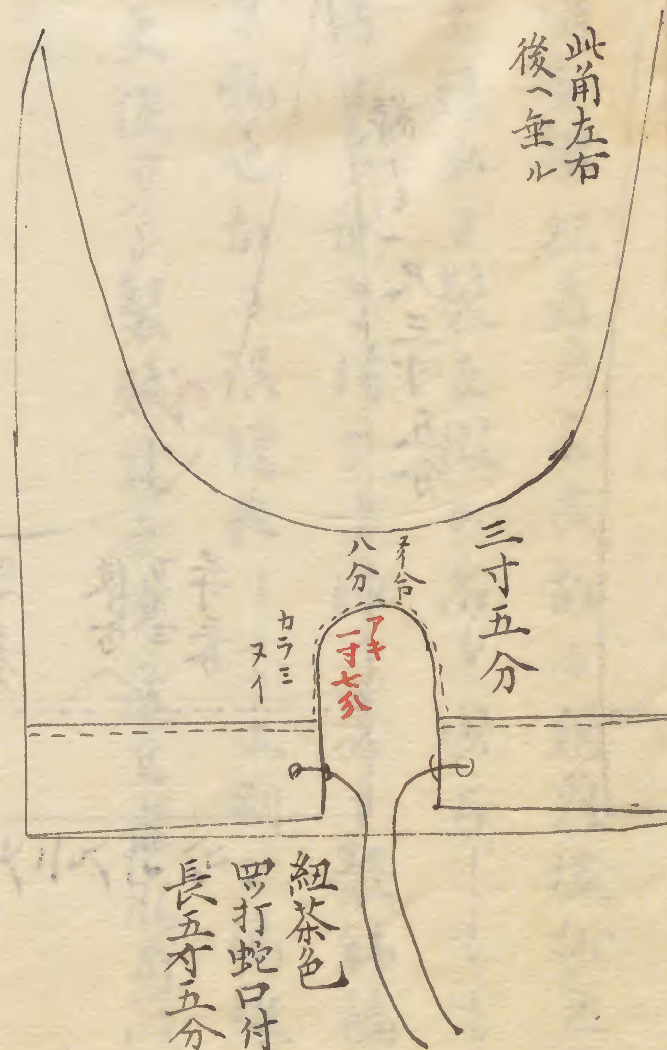 此角左右
後ヘ垂ル
三寸五分
ヌイ合
八分
アキ
一寸七分
カラミ
ヌイ
紐茶色
四ツ打蛇口付
長五寸五分